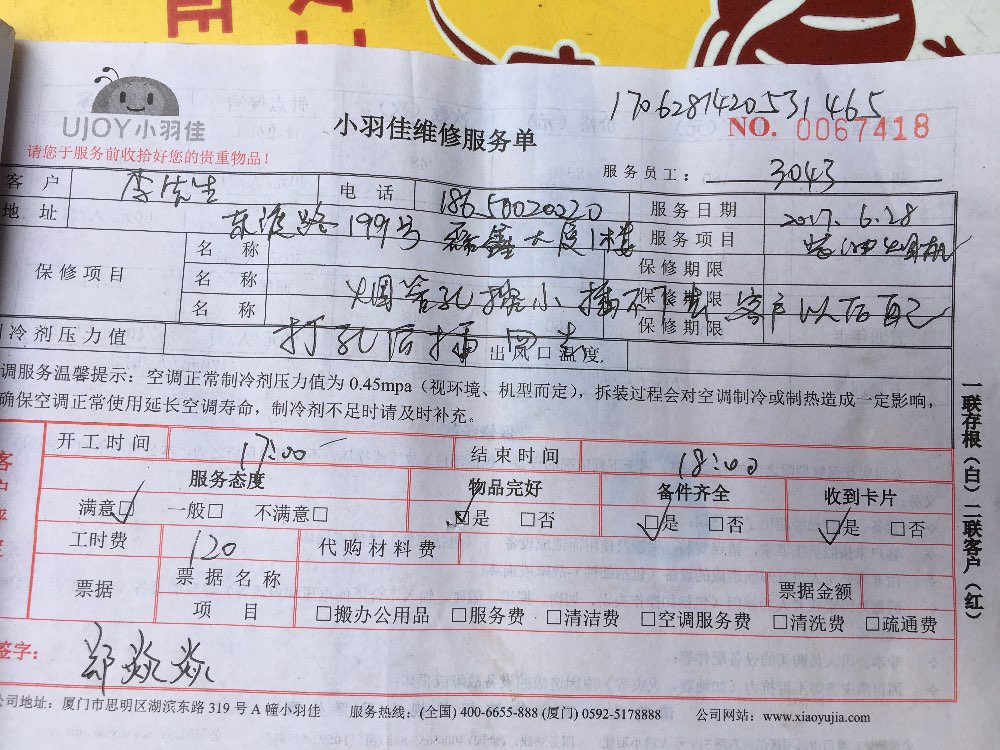 1706281420531465
UJOY小羽佳
小羽佳维修服务单
NO. 0067418
请您于服务前收拾好您的贵重物品！
服务员工： 3043
客 户 李先生 电 话 18650020020 服务日期 2017.6.28
地 址 东渡路199号 鑫大厦1楼 服务项目
保修项目 名 称 保修期限
名 称 烟管孔 小 插不 保修期限 客户以后自己
名 称 打孔后插回去 保修期限
冷剂压力值 出风口温度
调服务温馨提示：空调正常制冷剂压力值为 0.45mpa（视环境、机型而定），拆装过程会对空调制冷或制热造成一定影响，
确保空调正常使用延长空调寿命，制冷剂不足时请及时补充。
开工时间 17:00 结束时间 18:00
服务态度 物品完好 备件齐全 收到卡片
满意□ 一般□ 不满意□ □是 □否 □是 □否 □是 □否
工时费 120 代购材料费
票据 票据名称 票据金额
项 目 □搬办公用品 □服务费 □清洁费 □空调服务费 □清洗费 □疏通费
签字： 郑焱焱
公司地址：厦门市思明区湖滨东路 319 号 A 幢小羽佳 服务热线：(全国) 400-6655-888 (厦门) 0592-5178888 公司网站：www.xiaoyujia.com
一联存根（白）二联客户（红）